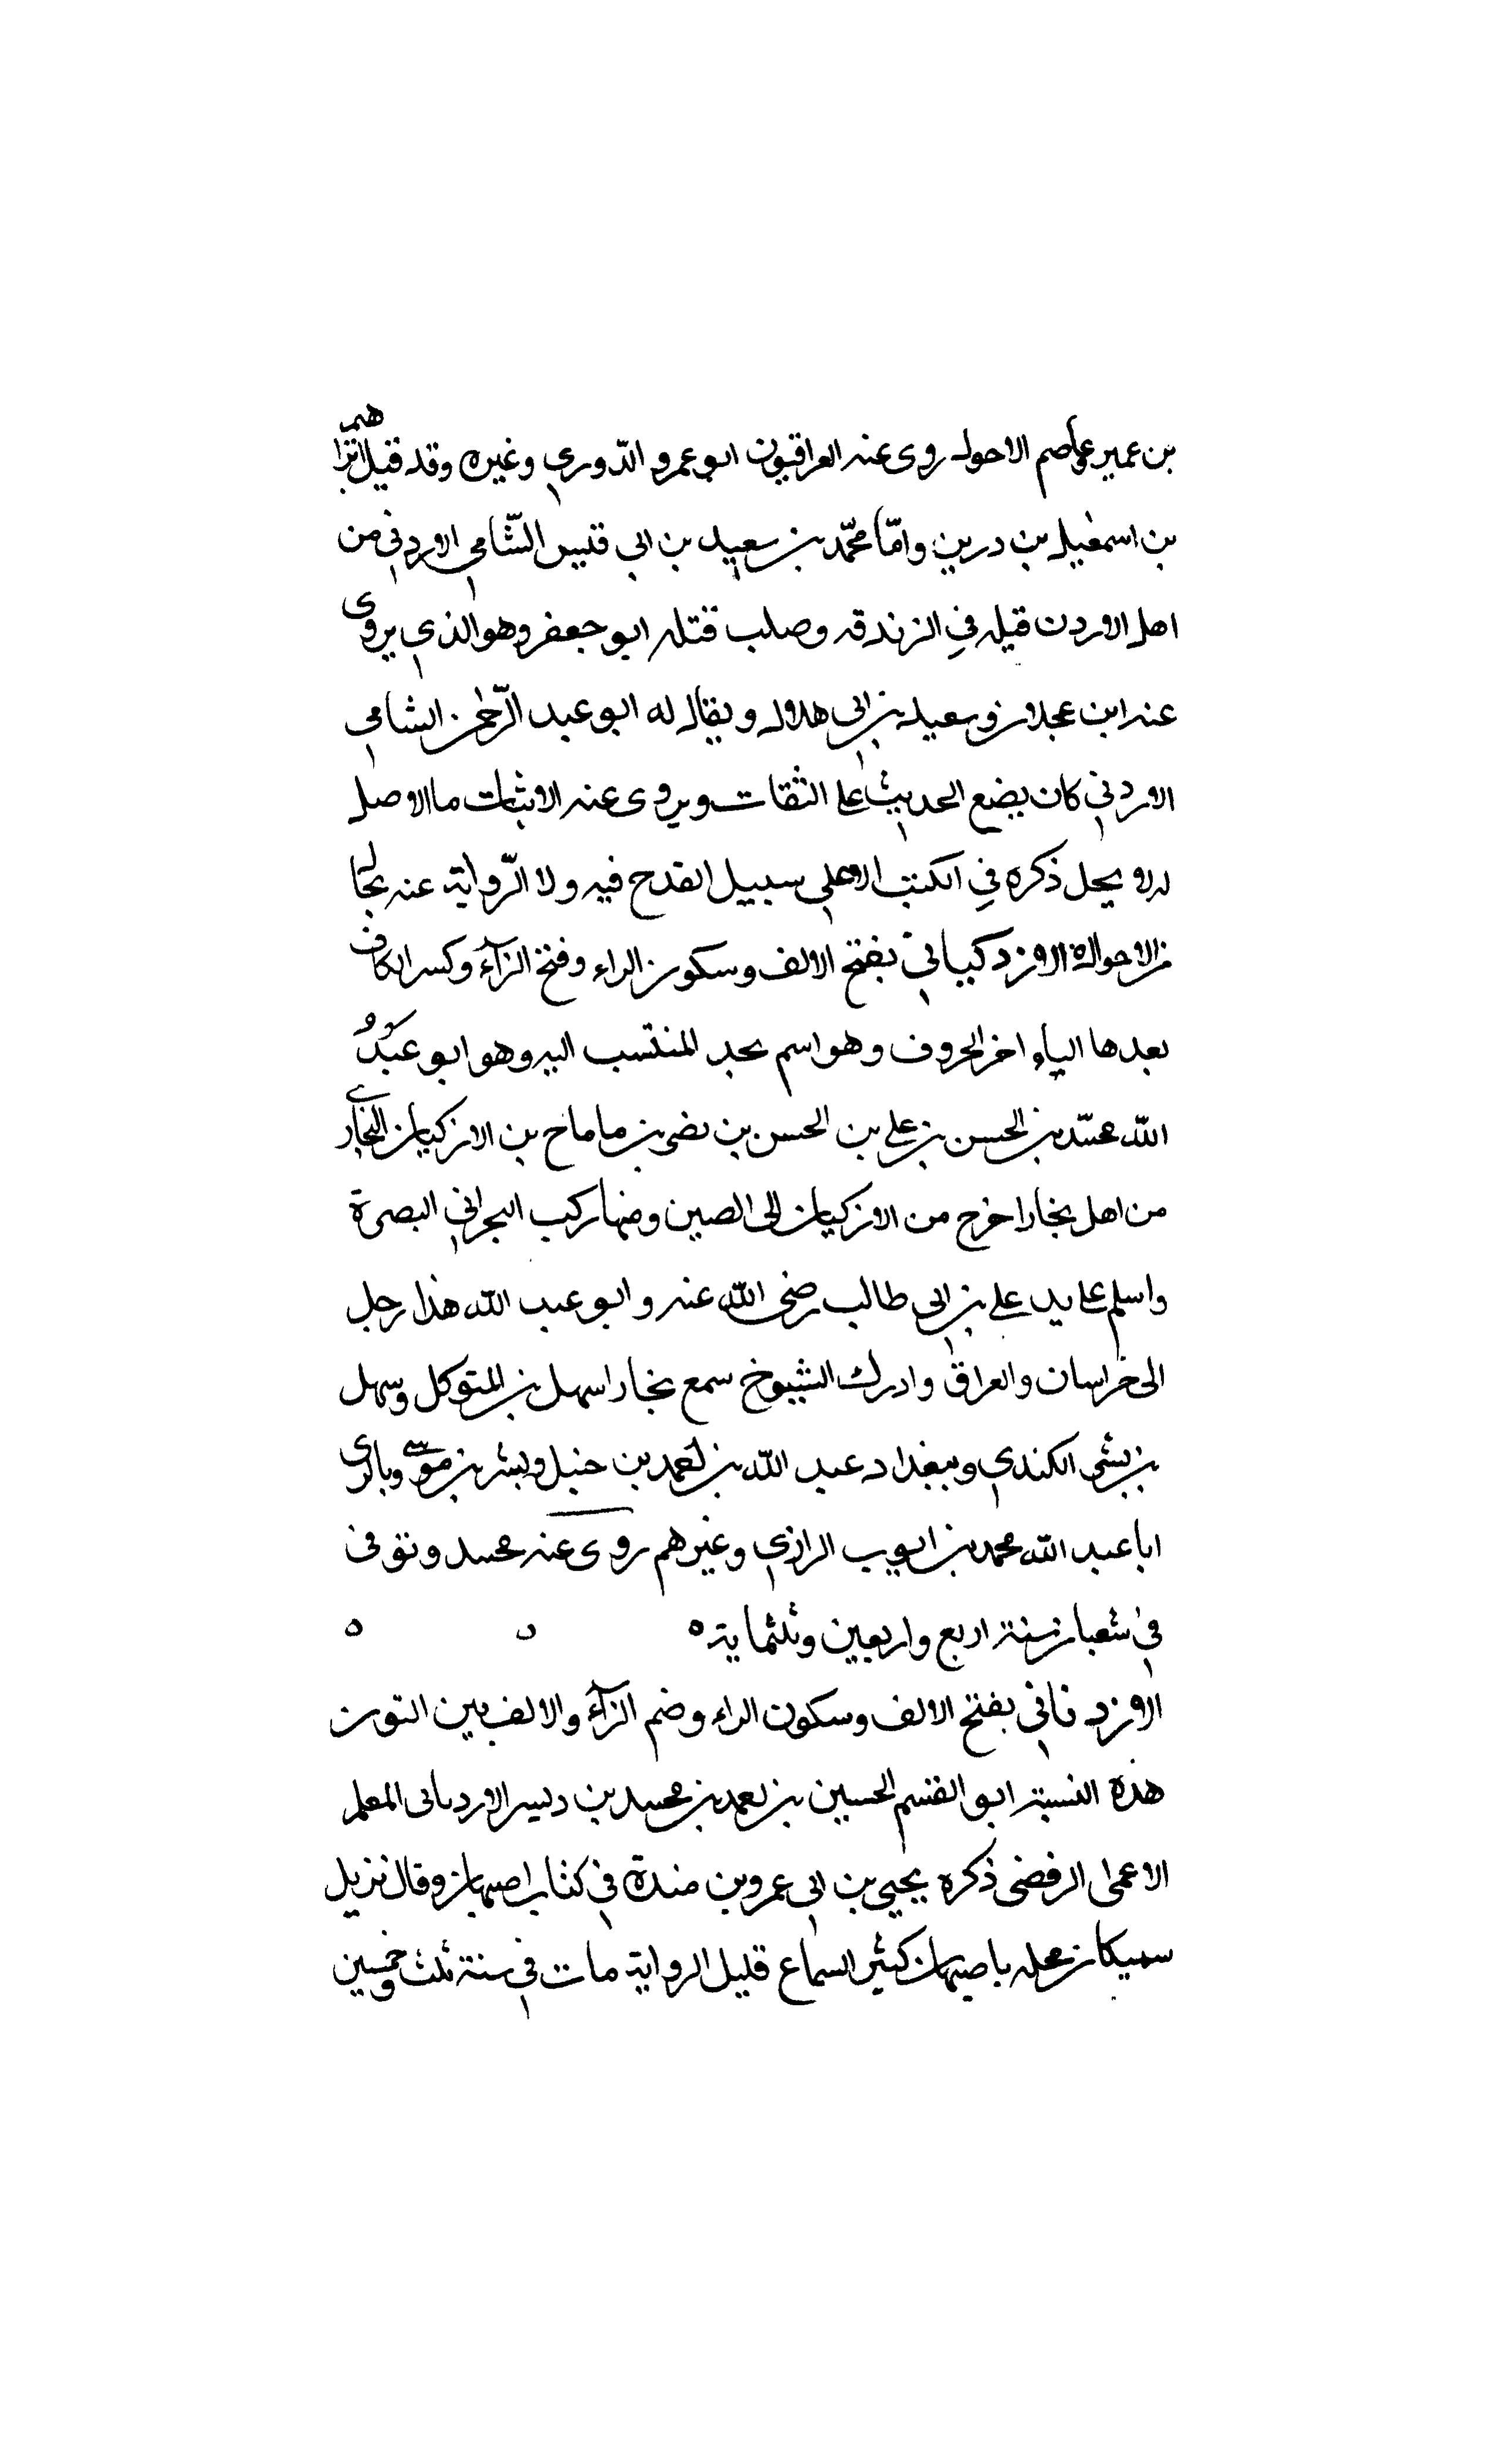 بن عمير وعاصم الاحول روى عنه العراقيون ابو عمرو الدّوري وغيره وقد قيل ابراهيم
بن اسمعيل بن درين وامّا محمّد بن سعيد بن ابي قيس الشّامي الاردني من
اهل الاردن قيل في الزندقه وصلب قتله ابو جعفر وهو الذي يروى
عنه ابن عجلان وسعيد بن ابي هلال ويقال له ابو عبد الرّحمن الشامي
الاردني كان يضع الحديث على الثقات ويروى عنه الاثبات ما لا اصل
له لا يحل ذكره في الكتب الا على سبيل القدح فيه ولا الرّواية عنه بحال
من الاحوال ه الارزكياني بفتح الالف وسكون الراء وفتح الزآء وكسر الكاف
بعدها الياء اخر الحروف وهو اسم لجد المنتسب اليه وهو ابو عبد
الله محمّد بن الحسن بن علي بن الحسن بن نضر بن ماماخ بن الارزكيان البخاري
من اهل بخارا خرج من الارزكيان الى الصين ومنها ركب البحر الى البصرة
واسلم على يد علي بن ابي طالب رضى الله عنه وابو عبد الله هذا رحل
الى خراسان والعراق وادرك الشيوخ سمع بخارا سهل بن المتوكل وسهل
بن بشر الكندي وببغداد عبد الله بن احمد بن حنبل وبشر بن موسى وبالري
ابا عبد الله محمد بن ايوب الرازي وغيرهم روى عنه محمد وتوفى
في شعبان سنة اربع واربعين وثلثماية ه ه ه
الارزناني بفتح الالف وسكون الراء وضم الزآء والالف بين النون
هذه النسبة ابو القسم الحسين بن احمد بن محمد بن الارزناني المعلم
الاعمى الرفضى ذكره يحيى بن ابى عمرو بن مندة في كتاب اصبهان وقال نزيل
محله باصبهان كثير السماع قليل الرواية مات في سنة ثلث وخمسين